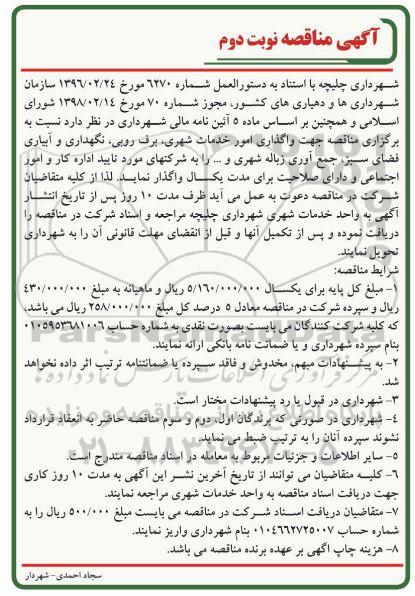 آگهی مناقصه نوبت دوم
شهرداری چلیچه با استناد به دستورالعمل شماره ۶۲۷۰ مورخ ۱۳۹۶/۰۲/۲۴ سازمان
شهرداری ها و دهیاری های کشور، مجوز شماره ۷۰ مورخ ۱۳۹۸/۰۲/۱۴ شورای
اسلامی و همچنین بر اساس ماده ۵ آئین نامه مالی شهرداری در نظر دارد نسبت به
برگزاری مناقصه جهت واگذاری امور خدمات شهری، برف روبی، نگهداری و آبیاری
فضای سبز، جمع آوری زباله شهری و ... را به شرکتهای مورد تایید اداره کار و امور
اجتماعی و دارای صلاحیت برای مدت یکسال واگذار نمایید. لذا از کلیه متقاضیان
شرکت در مناقصه دعوت به عمل می آید ظرف مدت ۱۰ روز پس از تاریخ انتشار
آگهی به واحد خدمات شهری شهرداری چلیچه مراجعه و اسناد شرکت در مناقصه را
دریافت نموده و پس از تکمیل آنها و قبل از انقضای مهلت قانونی آن را به شهرداری
تحویل نمایند.
شرایط مناقصه:
۱- مبلغ کل پایه برای یکسال ۵/۱۶۰/۰۰۰/۰۰۰ ریال و ماهیانه به مبلغ ۴۳۰/۰۰۰/۰۰۰
ریال و سپرده شرکت در مناقصه معادل ۵ درصد کل مبلغ ۲۵۸/۰۰۰/۰۰۰ ریال می باشد.
که کلیه شرکت کنندگان می بایست بصورت نقدی به شماره حساب ۰۱۰۵۹۵۳۶۸۱۰۰۶
بنام سپرده شهرداری و یا ضمانت نامه بانکی ارائه نمایند.
۲- به پیشنهادات مبهم، مخدوش و فاقد سپرده یا ضمانتنامه ترتیب اثر داده نخواهد
شد.
۳- شهرداری در قبول یا رد پیشنهادات مختار است.
۴- شهرداری در صورتی که برندگان اول، دوم و سوم مناقصه حاضر به انعقاد قرارداد
نشوند سپرده آنان را به ترتیب ضبط می نماید.
۵- سایر اطلاعات و جزئیات مربوط به معامله در اسناد مناقصه مندرج است.
۶- کلیه متقاضیان می توانند از تاریخ آخرین نشر این آگهی به مدت ۱۰ روز کاری
جهت دریافت اسناد مناقصه به واحد خدمات شهری مراجعه نمایند.
۷- متقاضیان دریافت اسناد شرکت در مناقصه می بایست مبلغ ۵۰۰/۰۰۰ ریال را به
شماره حساب ۰۱۰۴۶۶۲۷۲۵۰۰۷ بنام شهرداری واریز نمایند.
۸- هزینه چاپ اگهی بر عهده برنده مناقصه می باشد.
سجاد احمدی- شهردار